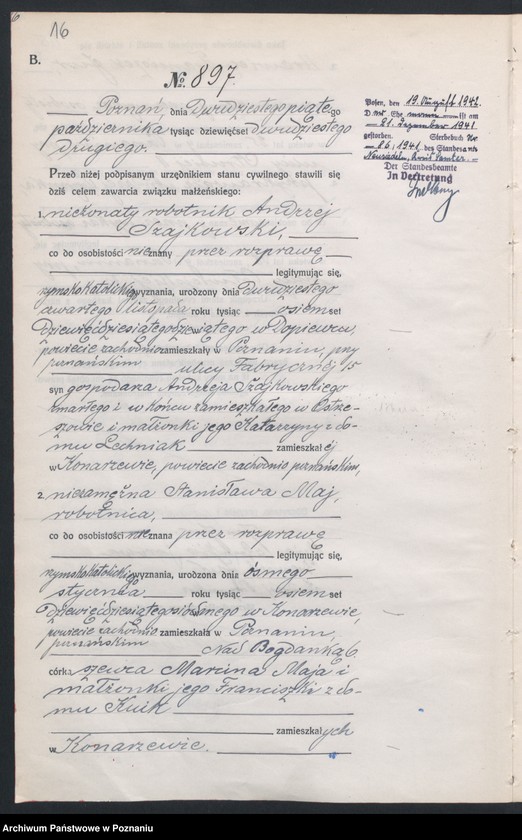 16
B.
№ 897.
Poznań, dnia Dwudziestego piątego
października tysiąc dziewięćset dwudziestego
drugiego.
Przed niżej podpisanym urzędnikiem stanu cywilnego stawili się
dziś celem zawarcia związku małżeńskiego:
1. nieżonaty robotnik Andrzej
Szajkowski,
co do osobistości nieznany przez rozprawę
legitymując się,
rzymskokatolickiego wyznania, urodzony dnia Dwudziestego
czwartego listopada roku tysiąc osiemset
Dziewięćdziesiątegodziewiątego w Dopiewcu,
powiecie zachodnio zamieszkały w Poznaniu, przy
poznańskim ulicy Fabrycznej 15
syn gospodarza Andrzeja Szajkowskiego
zmarłego i w końcu zamieszkałego w Ostrze-
szowie i małżonki jego Katarzyny z do-
mu Lechniak zamieszkałej
w Konarzewie, powiecie zachodnio poznańskim,
2. niezamężna Stanisława Maj,
robotnica,
co do osobistości nieznana przez rozprawę
legitymując się,
rzymskokatolickiego wyznania, urodzona dnia ósmego
stycznia roku tysiąc osiemset
Dziewięćdziesiątegosiódmego w Konarzewie,
powiecie zachodnio zamieszkała w Poznaniu,
poznańskim Nad Bogdanką 6.
córka szewca Marcina Maja i
małżonki jego Franciszki z do-
mu Kuik
zamieszkałych
w Konarzewie.
Posen, den 19. August 1942.
D. Ehe ist am
21. Dezember 1941
gestorben. Sterbebuch Nr.
86/1941 des Standesamts
Der Standesbeamte
In Vertretung
Archiwum Państwowe w Poznaniu